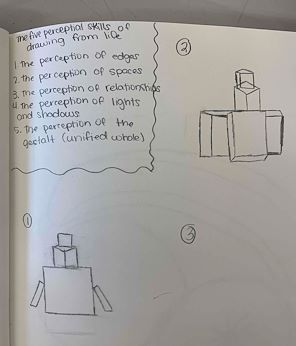 The five perceptial skills of
drawing from life
1. The perception of edges
2. The perception of spaces
3. The perception of relationships
4. The perception of lights
and shadows
5. The perception of the
gestalt (unified whole)
②
①
③